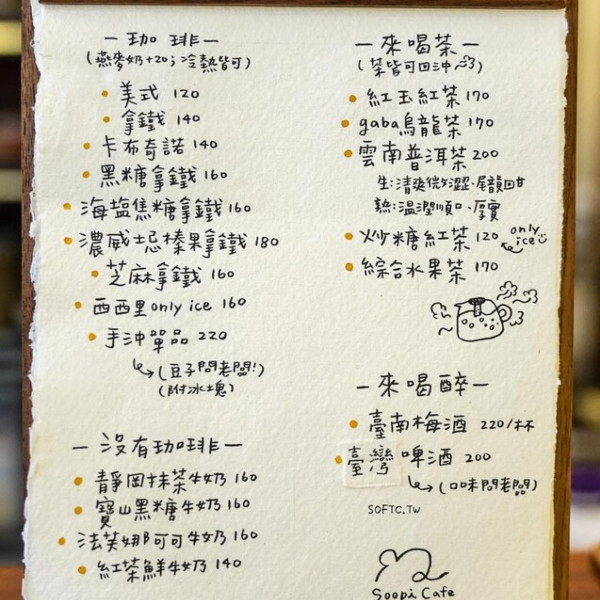 －珈琲－
(燕麥奶+20；冷熱皆可)
美式 120
拿鐵 140
卡布奇諾 140
黑糖拿鐵 160
海鹽焦糖拿鐵 160
濃威士忌榛果拿鐵 180
芝麻拿鐵 160
西西里 only ice 160
手沖單品 220
(豆子問老闆!)
(附冰塊)
－沒有珈琲－
靜岡抹茶牛奶 160
寶山黑糖牛奶 160
法芙娜可可牛奶 160
紅茶鮮牛奶 140
－來喝茶－
(茶皆可回沖)
紅玉紅茶 170
gaba烏龍茶 170
雲南普洱茶 200
生:清爽微澀、尾韻回甘
熟:溫潤順口、厚實
炒糖紅茶 120 only ice
綜合水果茶 170
－來喝醉－
臺南梅酒 220/杯
臺灣啤酒 200
(口味問老闆)
SOFTC.TW
Soopi Cafe